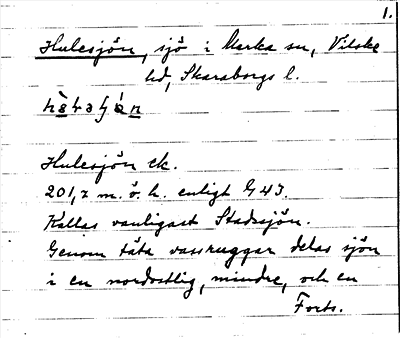 1.
Hulesjön, sjö i Marka sn, Vilske
hd, Skaraborgs l.
Hulesjön ek.
201,7 m. ö. h. enligt G 43.
Kallas vanligast Stadssjön.
Genom täta vassruggar delas sjön
i en nordostlig, mindre, och en
Forts.